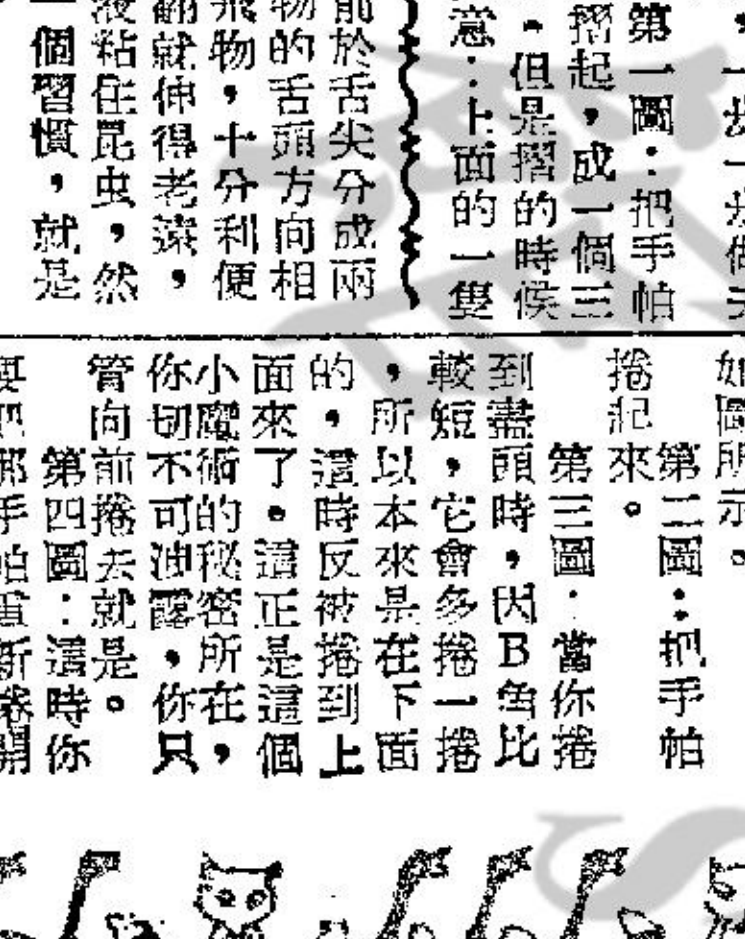 ，一步一步做去
第一圖：把手帕
摺起，成一個三
。但是摺的時候
意：上面的一隻
前於舌尖分成兩
物的舌頭方向相
飛物，十分利便
翻就伸得老遠，
液粘住昆虫，然
一個習慣，就是
如圖所示。
第二圖：把手帕
捲起來。
第三圖：當你捲
到盡頭時，因B角比
較短，它會多捲一捲
，所以本來是在下面
的，這時反被捲到上
面來了。這正是這個
小魔術的秘密所在，
你切不可洩露，你只
管向前捲去就是。
第四圖：這時你
把那手帕重新捲開